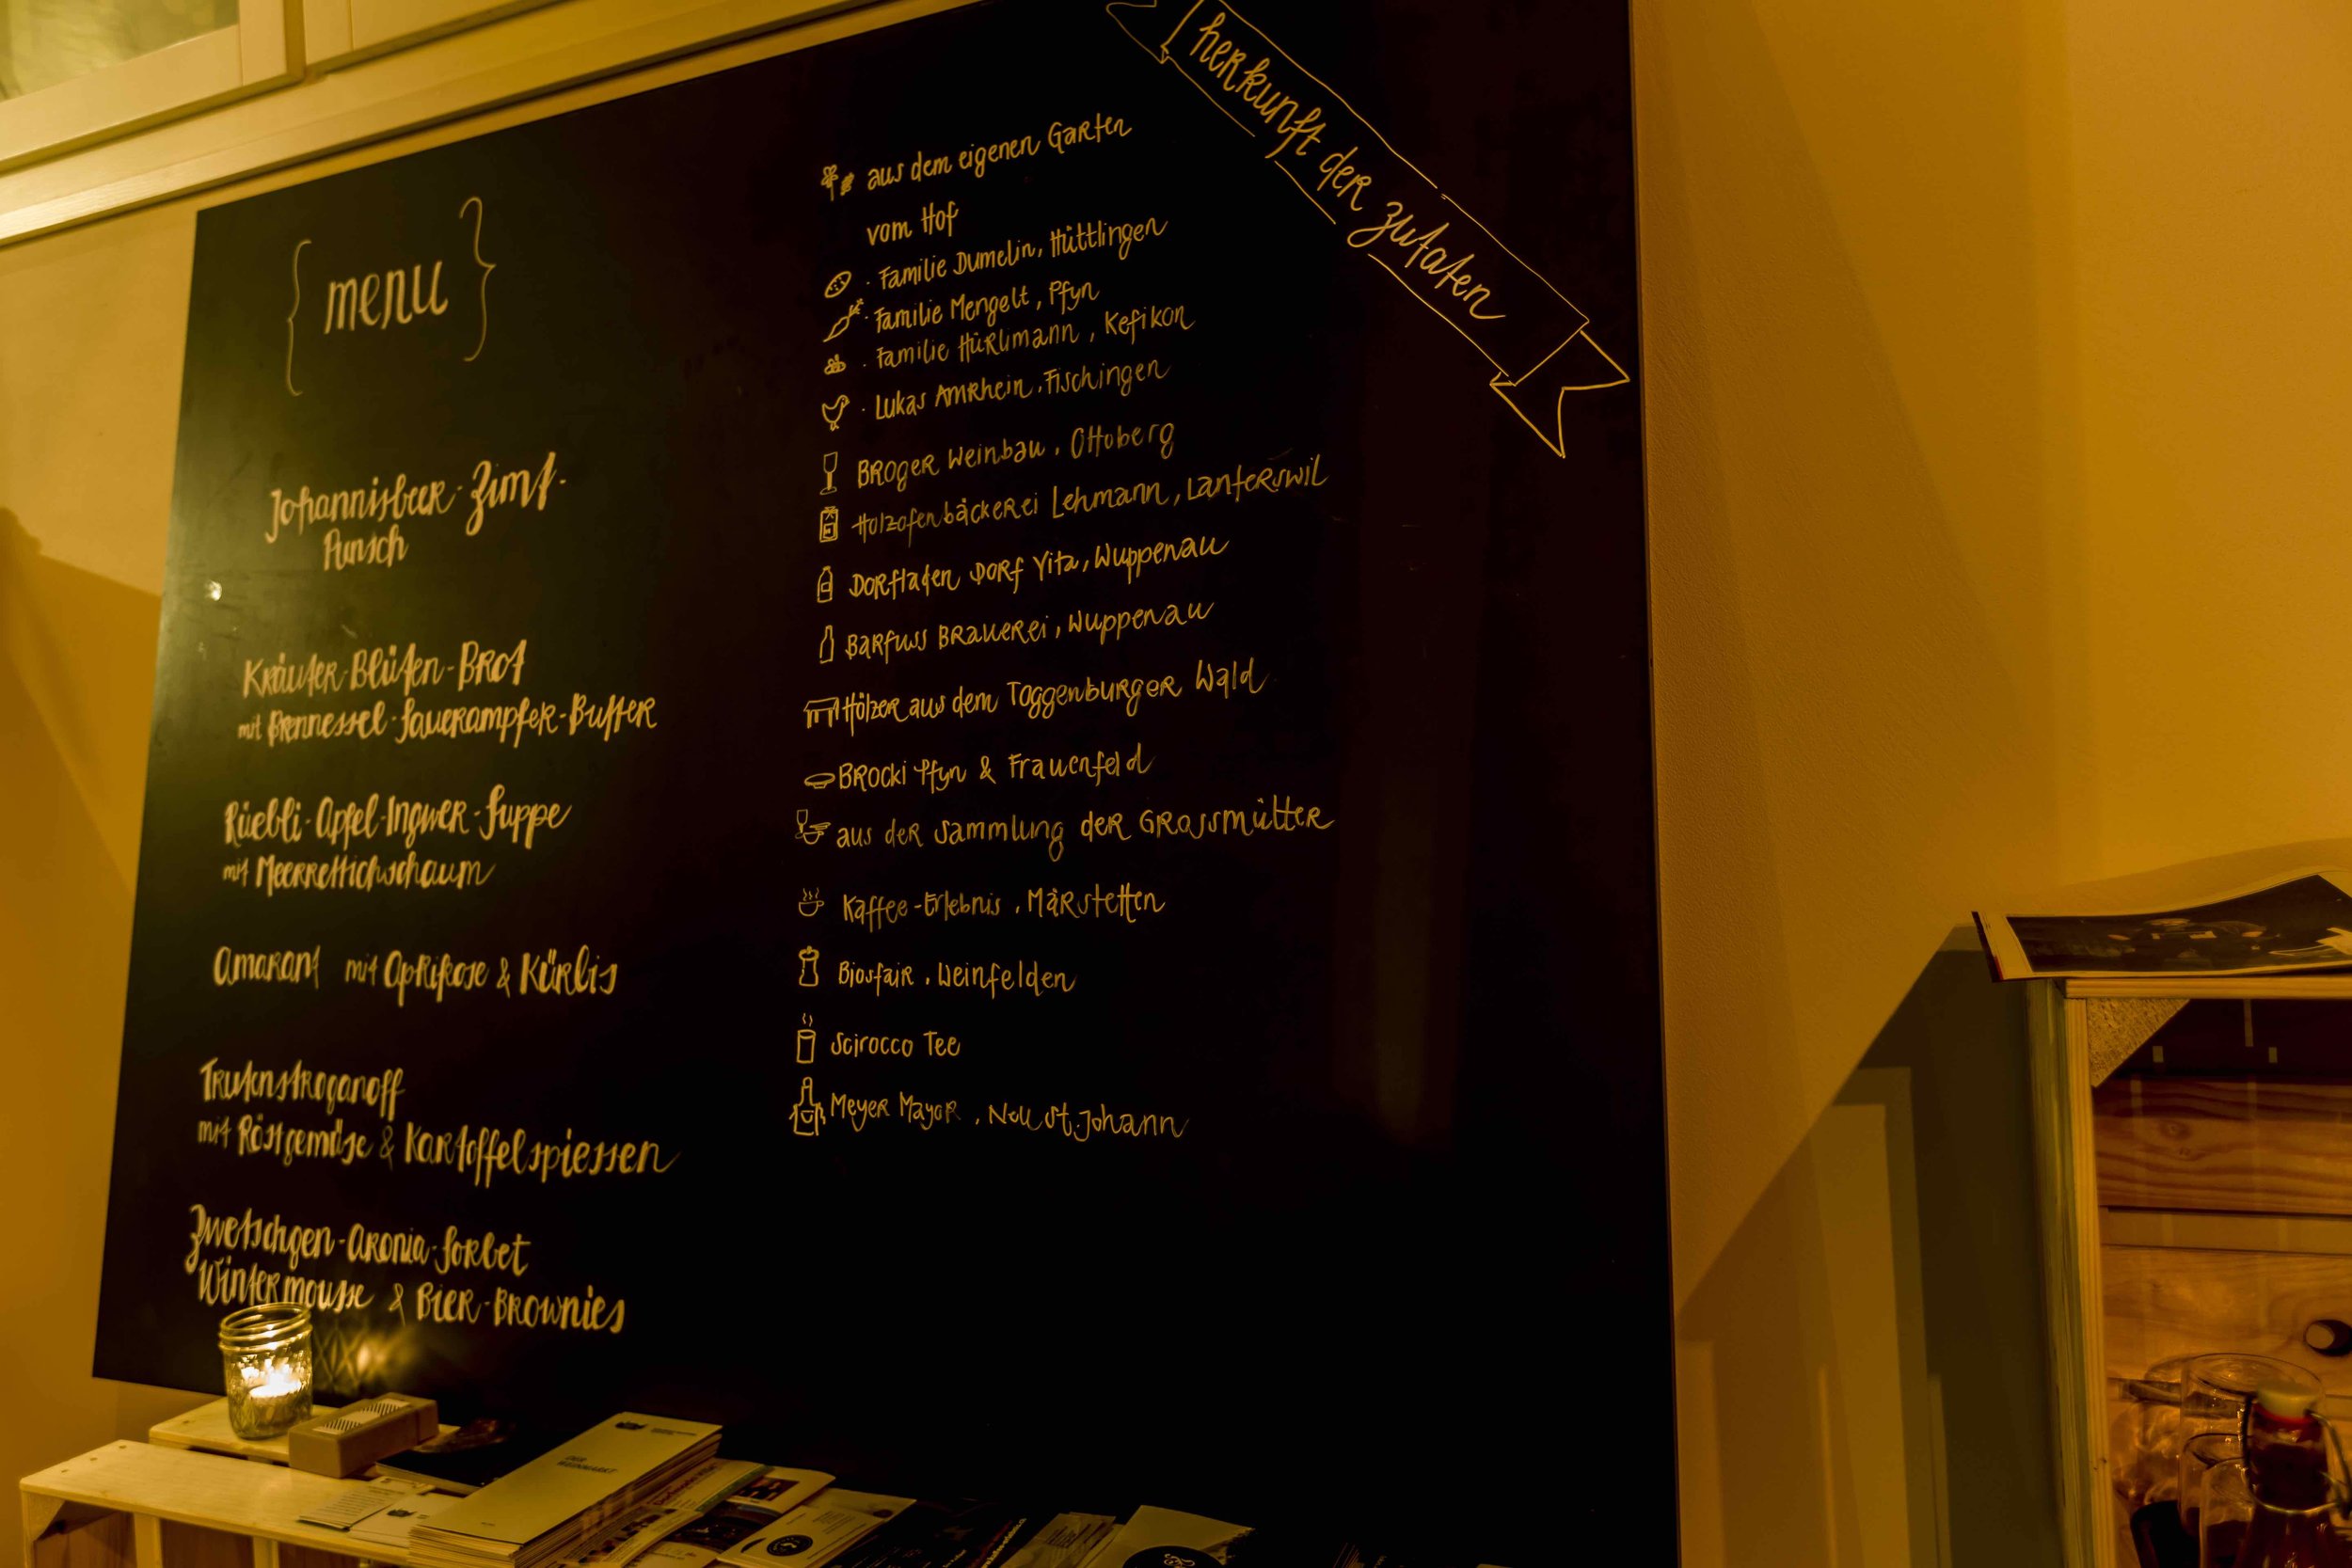 { menu }
Johannisbeer-Zimt-
Punsch
Kräuter-Blüten-Brot
mit Brennessel-Sauerampfer-Butter
Rüebli-Apfel-Ingwer-Suppe
mit Meerrettichschaum
Amarant mit Aprikose & Kürbis
Trutenstroganoff
mit Röstgemüse & Kartoffelspiessen
Zwetschgen-Aronia-Sorbet
Wintermousse & Bier-Brownies
herkunft der zutaten
aus dem eigenen Garten
vom Hof
· Familie Dumelin, Hüttlingen
· Familie Mengelt, Pfyn
· Familie Hürlimann, Kefikon
· Lukas Amrhein, Fischingen
Broger Weinbau, Ottoberg
Holzofenbäckerei Lehmann, Lanterswil
Dorfladen Dorf Vita, Wuppenau
Barfuss Brauerei, Wuppenau
Hölzer aus dem Toggenburger Wald
Brocki Pfyn & Frauenfeld
aus der Sammlung der Grossmütter
Kaffee-Erlebnis, Märstetten
Biosfair, Weinfelden
Scirocco Tee
Meyer Mayor, Neu St. Johann
DER